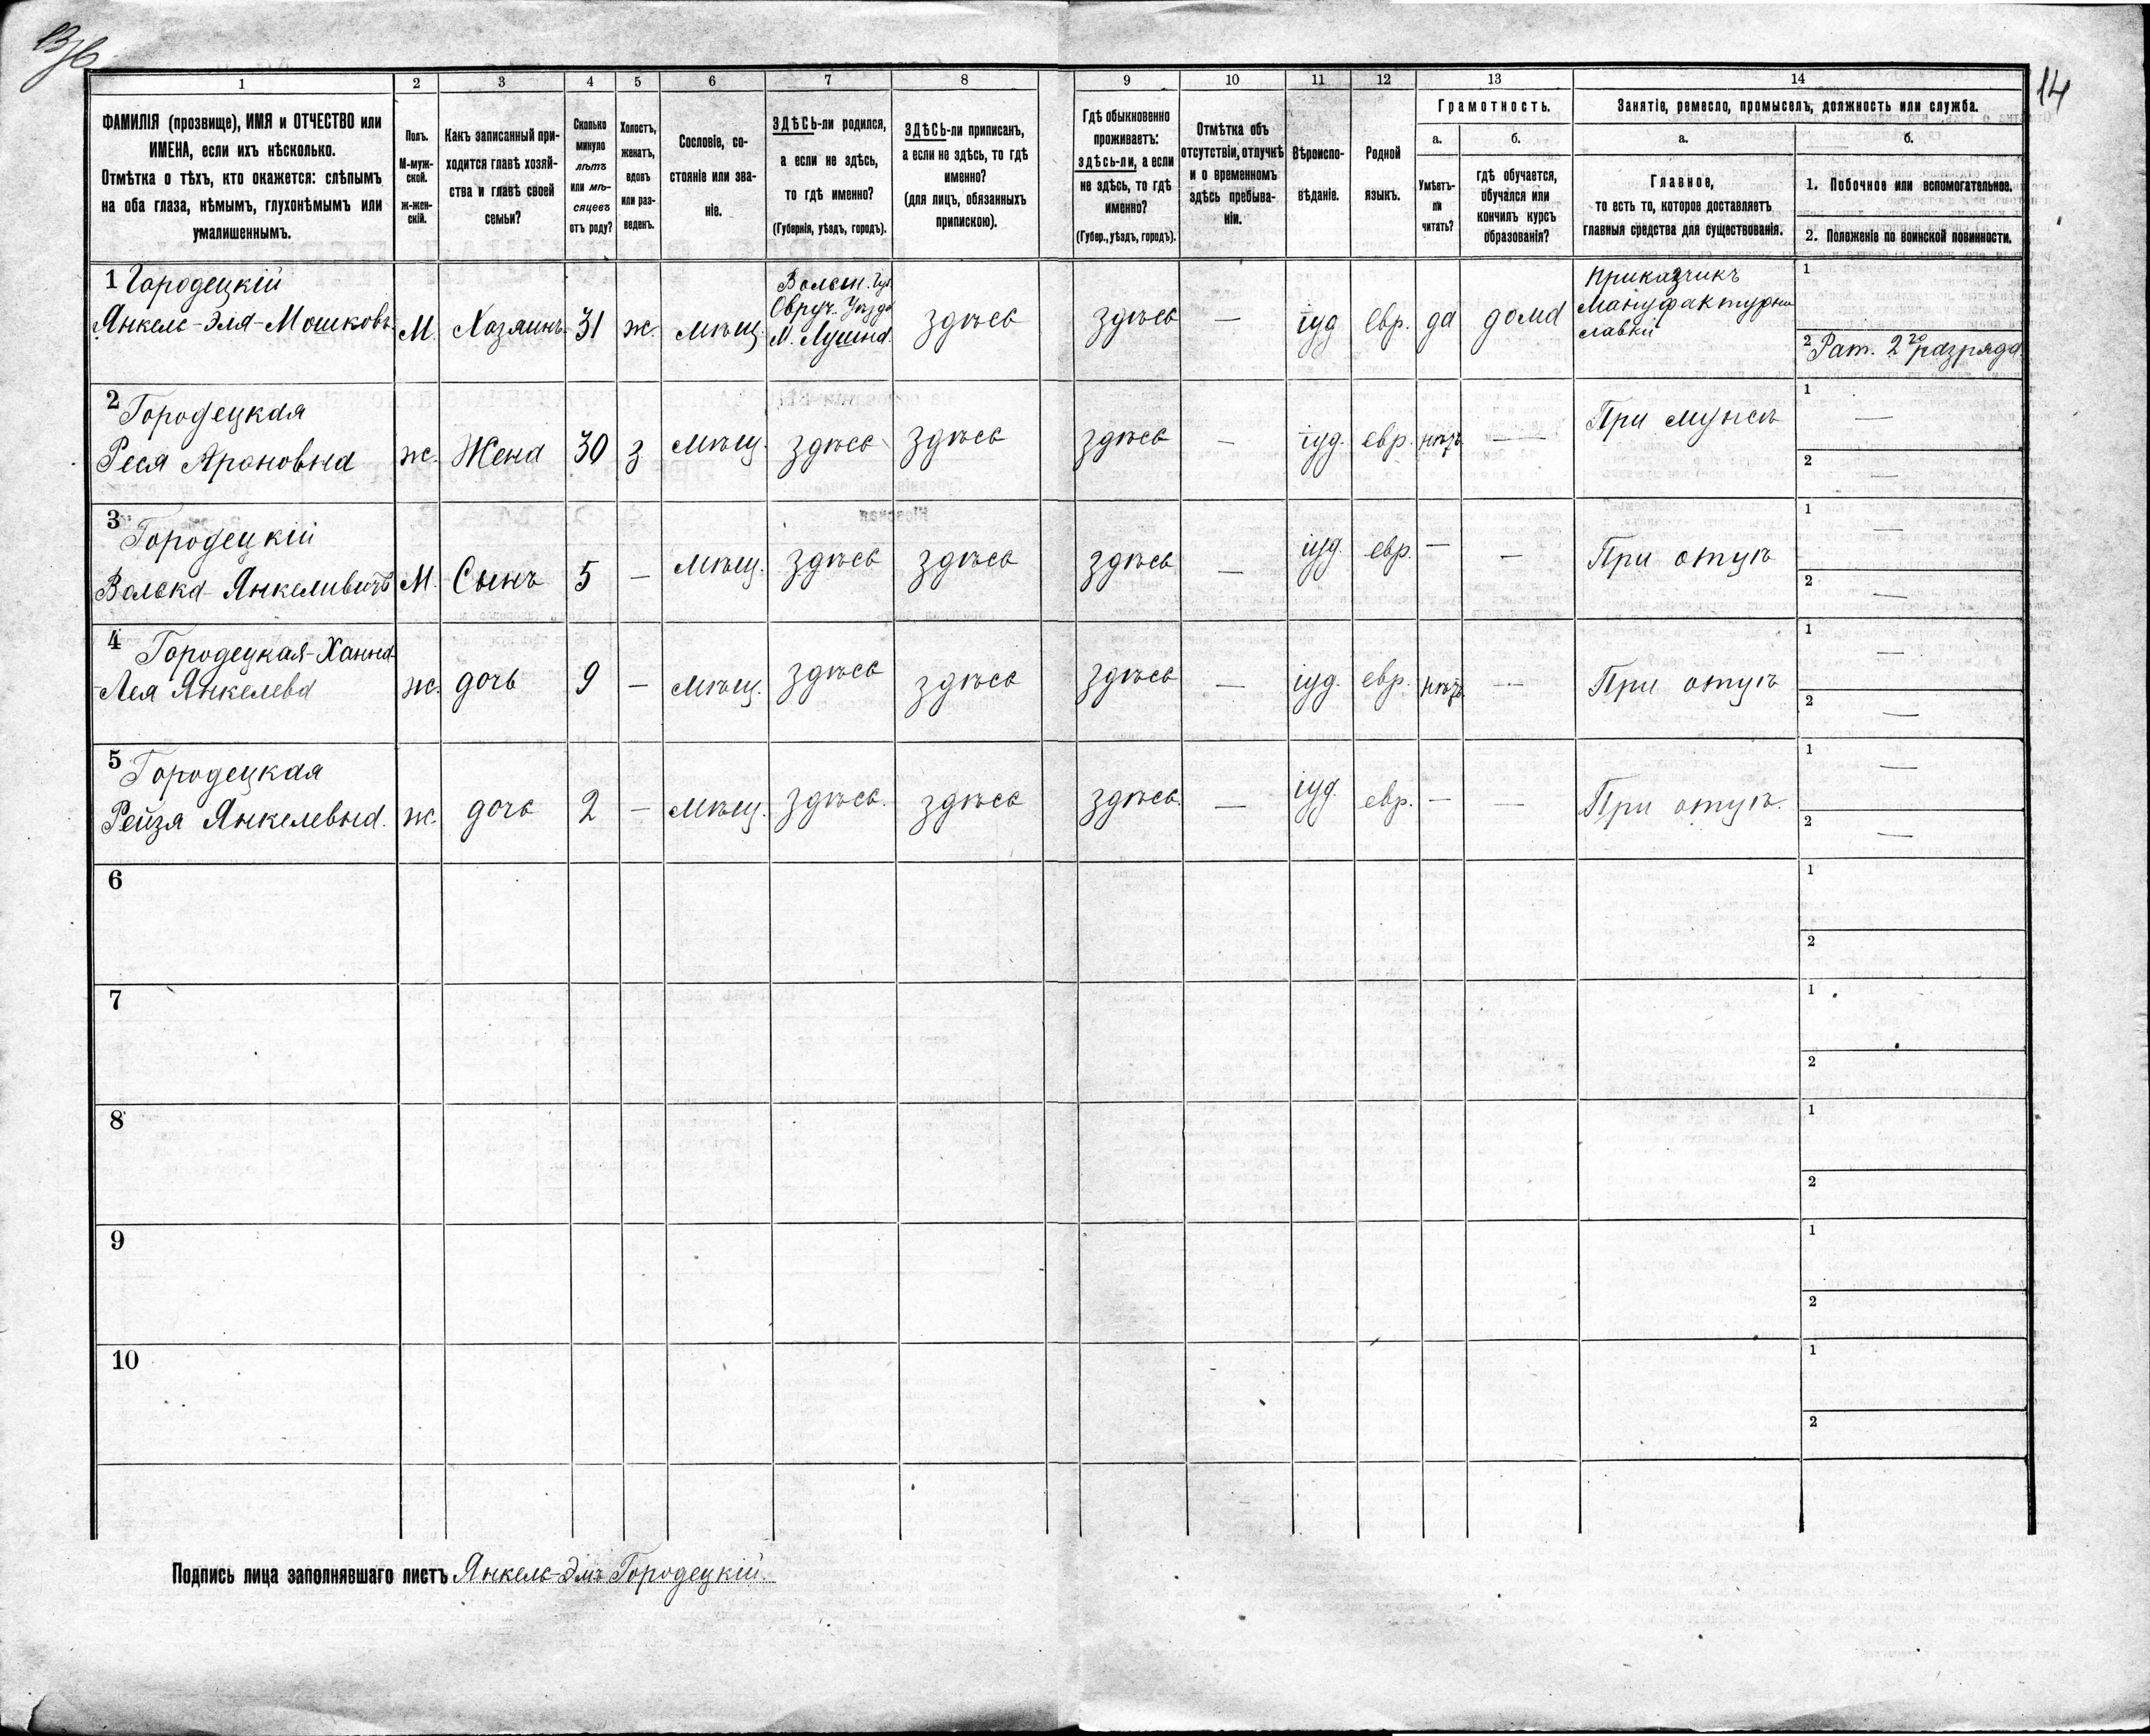 14
1
2
3
4
5
6
7
8
9
10
11
12
13
14
ФАМИЛІЯ (прозвище), ИМЯ и ОТЧЕСТВО или
ИМЕНА, если ихъ нѣсколько.
Отмѣтка о тѣхъ, кто окажется: слѣпымъ
на оба глаза, нѣмымъ, глухонѣмымъ или
умалишеннымъ.
Полъ.
М-муж-
ской.
Ж-жен-
скій.
Какъ записанный при-
ходится главѣ хозяй-
ства и главѣ своей
семьи?
Сколько
минуло
лѣтъ
или мѣ-
сяцевъ
отъ роду?
Холостъ,
женатъ,
вдовъ
или раз-
веденъ.
Сословіе, со-
стояніе или зва-
ніе.
ЗДѢСЬ-ли родился,
а если не здѣсь,
то гдѣ именно?
(Губернія, уѣздъ, городъ).
ЗДѢСЬ-ли приписанъ,
а если не здѣсь, то гдѣ
именно?
(для лицъ, обязанныхъ
припискою).
Гдѣ обыкновенно
проживаетъ:
здѣсь-ли, а если
не здѣсь, то гдѣ
именно?
(Губер., уѣздъ, городъ).
Отмѣтка объ
отсутствіи, отлучкѣ
и о временномъ
здѣсь пребыва-
ніи.
Вѣроиспо-
вѣданіе.
Родной
языкъ.
Грамотность.
а.
Умѣетъ-
ли
читать?
б.
гдѣ обучается,
обучался или
кончилъ курсъ
образованія?
Занятіе, ремесло, промыселъ, должность или служба.
а.
Главное,
то есть то, которое доставляетъ
главныя средства для существованія.
б.
1. Побочное или вспомогательное.
2. Положеніе по воинской повинности.
1 Городецкій
Янкель-Эля-Мошковъ
М.
Хозяинъ
31
ж.
мѣщ.
Волын. Губ.
Овруч. Уѣзда
М.
здѣсь
здѣсь
—
іуд
евр.
да
дома
Приказчикъ
Мануфактурн
лавки
1
2 Рат. 2го разряда.
2 Городецкая
Реся Ароновна
ж.
Жена
30
з
мѣщ.
здѣсь
здѣсь
здѣсь
—
іуд.
евр.
нѣтъ
—
При мужѣ
1 —
2 —
3 Городецкій
Волька Янкеливичъ
М.
Сынъ
5
—
мѣщ.
здѣсь
здѣсь
здѣсь
—
іуд.
евр.
—
—
При отцѣ
1 —
2 —
4 Городецкая-Ханна-
-Лея Янкелева
ж.
дочь
9
—
мѣщ.
здѣсь
здѣсь
здѣсь
—
іуд.
евр.
нѣтъ
—
При отцѣ
1 —
2 —
5 Городецкая
Рейзя Янкелевна.
ж.
дочь
2
—
мѣщ.
здѣсь.
здѣсь
здѣсь.
—
іуд.
евр.
—
—
При отцѣ.
1 —
2 —
6
1
2
7
1
2
8
1
2
9
1
2
10
1
2
Подпись лица заполнявшаго листъ Янкель Эль Городецкій.